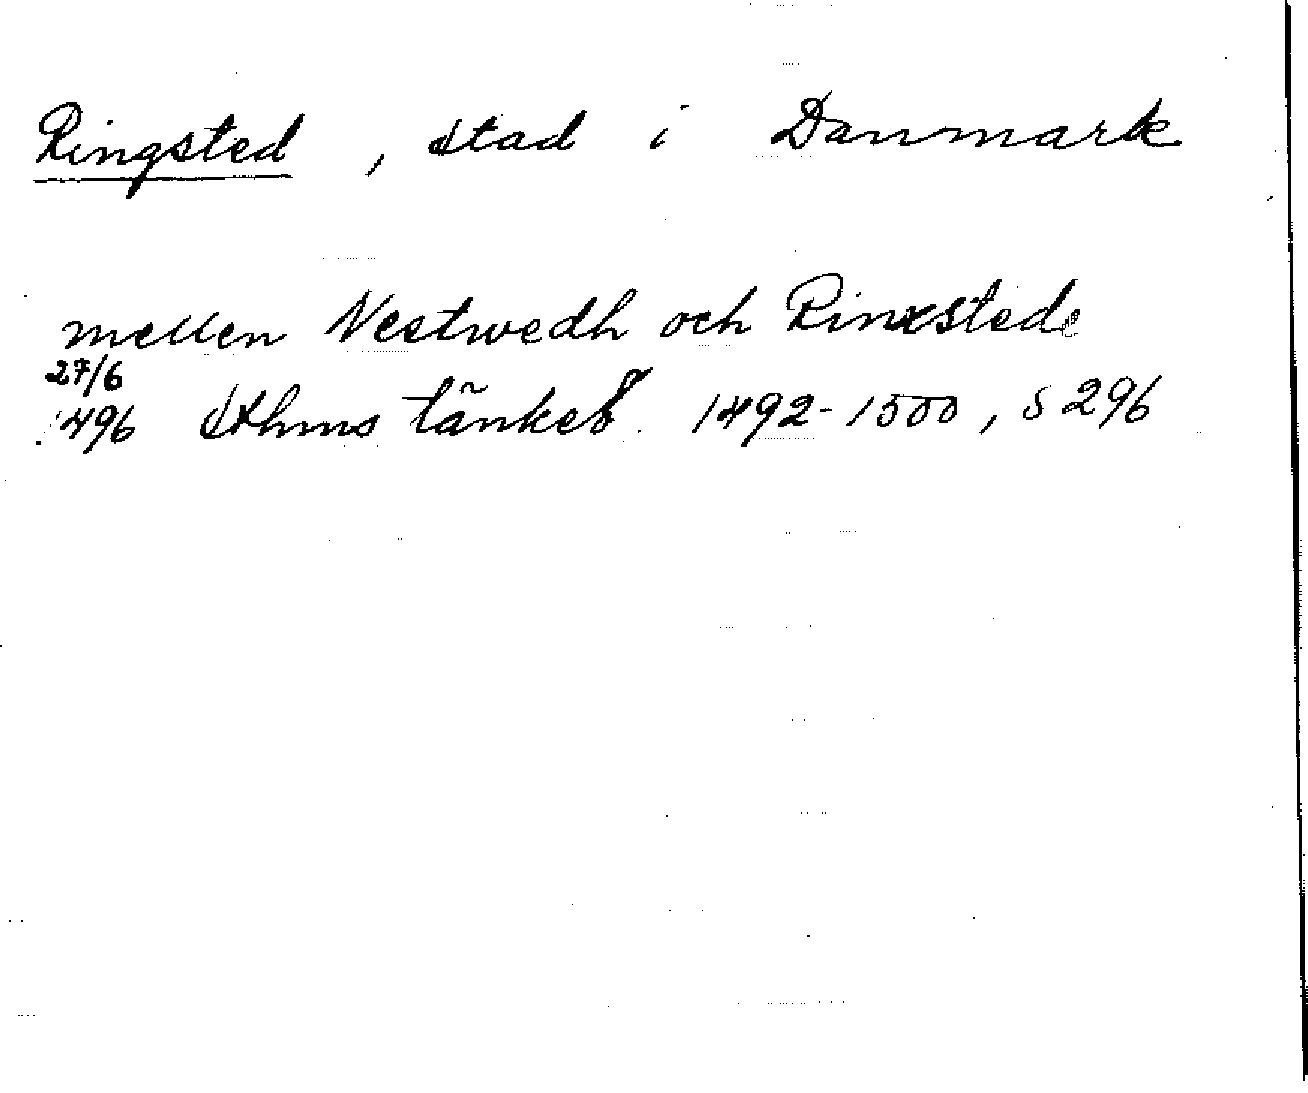 Ringsted, stad i Danmark
mellen Nestwedh och Rinxstede
27/6
1496 Sthms tänkeb. 1492-1500, s 296